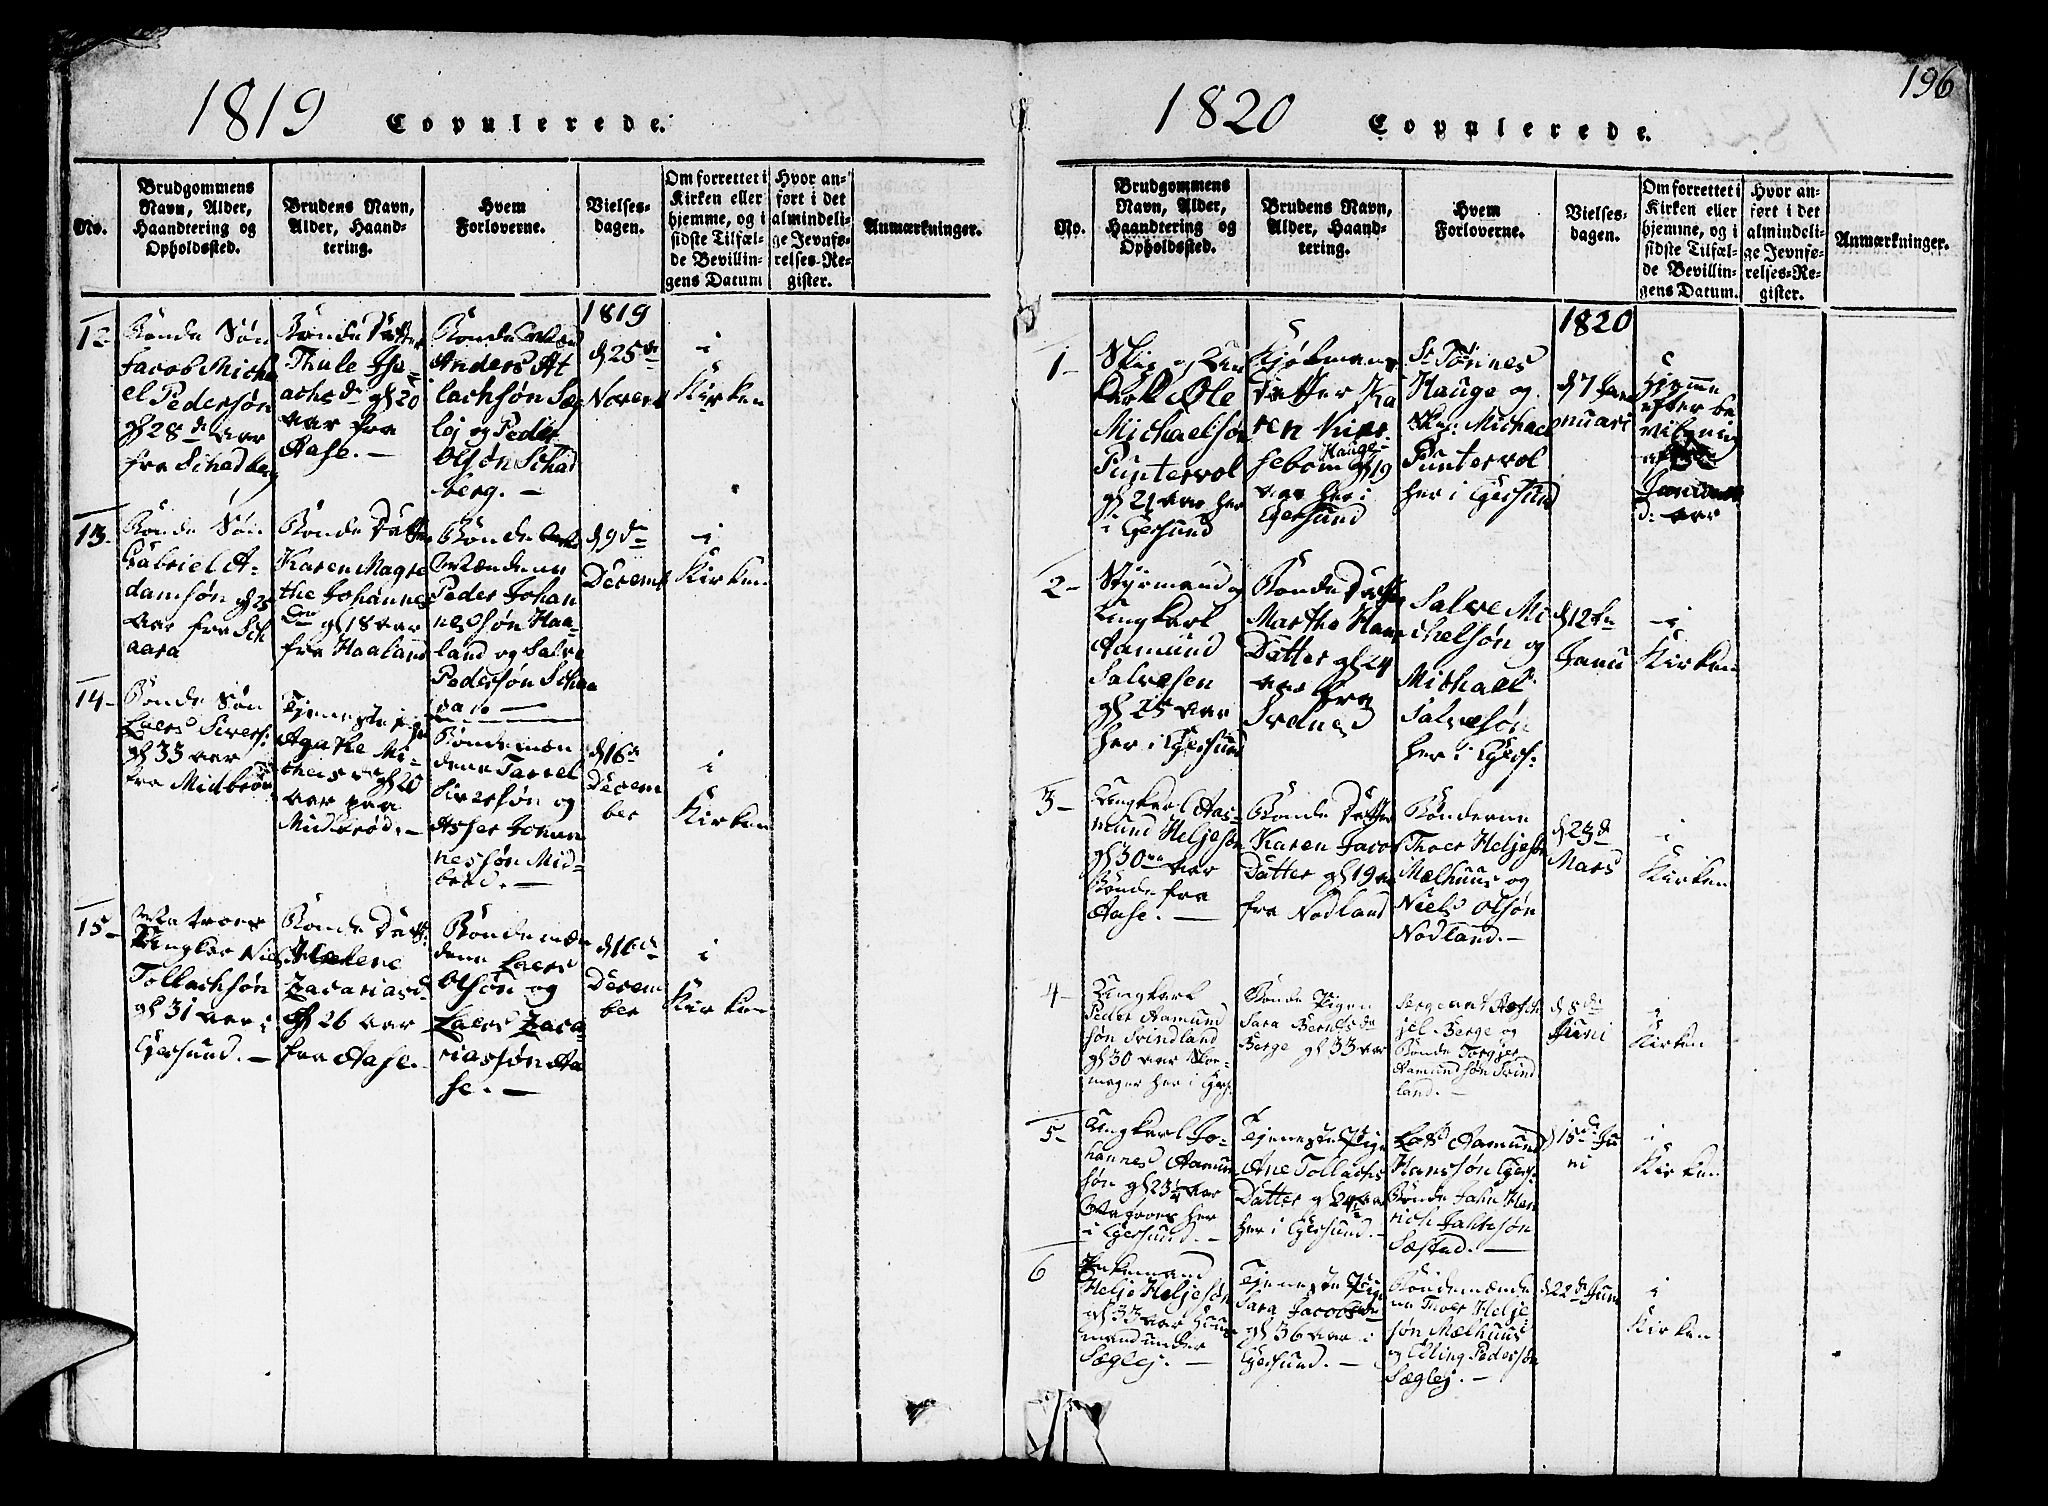 1819 Copulerede.
No.
Brudgommens
Navn, Alder,
Haandtering og
Opholdssted.
Brudens Navn,
Alder, Haand-
tering.
Hvem
Forloverne.
Vielses-
dagen.
Om forrettet i
Kirken eller
hjemme, og i
sidste Tilfæl-
de Bevillin-
gens Datum
Hvor an-
ført i det
almindeli-
ge Jevnfø-
relses-Re-
gister.
Anmærkninger.
1819
12
Bonde Søn
Jacob Micha
el Pedersøn
gl 28 de aar
fra Schadberg
Bonde Datter
Thale Isa-
achsd gl 20
aar fra
Aase. -
Bonde
Anders At
lachsøn Sæg
loj og Peder
Olsøn Schad
berg. -
d 25 de
Novemb
i
Kirken
13.
Bonde Søn
Gabriel A-
damsøn gl 25
aar fra Sch
aara
Bonde Datter
Karen Magre
the Johannes
Dtr gl 18 aar
fra Haaland
Bonde
Mændene
Peder Johan
nessøn Haa-
land og Salve
Pedersøn Scha
ran -
d 9 de
Decemb
i
Kirken
14-
Bonde Søn
Laers Sivers:
gl 33 aar
fra Midbrød
Tjenestepige
Agathe Mi-
chelsd gl 20
aar paa
Midbrød. -
Bondemæn
dene Tarrel
Siversøn og
Asser Johan
nessøn Mid-
brød. -
d 16 de
Decem
ber
i
Kirken
15-
Matroes
Ungkar Niels
Tollachsøn
gl 31 aar i
Egersund. -
Bonde Datt:
Helene
Zacariasd.
gl 26 aar
fra Aase. -
Bondemæn
dene Laers
Olsøn og
Laers Zaca-
riassøn Aa
se. -
d 16 de
Decem
ber
i
Kirken
196
1820 Copulerede.
No.
Brudgommens
Navn, Alder,
Haandtering og
Opholdssted.
Brudens Navn,
Alder, Haand-
tering.
Hvem
Forloverne.
Vielses-
dagen.
Om forrettet i
Kirken eller
hjemme, og i
sidste Tilfæl-
de Bevillin-
gens Datum.
Hvor an-
ført i det
almindeli-
ge Jevnfø-
relses-Re-
gister.
Anmærkninger.
1820
1-
Ole
Michaelsøn
Puntervol
gl 21 aar her
i Egersund
Kjøbmans
Datter Ka
ren
Hauge
gl 19
aar her i
Egersund
Sr Tønnes
Hauge og
Michael
Puntervol
her i Egersund
d 7 Ja
nuari
Hjemme
efter be
vilgning
af
Januari
d: aar
2-
Styrmand og
Ungkarl
Aamund
Salvesen
gl 25 aar
her i Egersund
Bonde Datter
Marthe Hans
Datter gl 24
aar fra
Svanes
Salve Mi
chelsøn og
Michael
Salvesøn
her i Egers:
d 12 te
Janu
i
Kirken
3-
Ungkarl Aas-
mund Heljesøn
gl 30 aar
Bonde fra
Aase. -
Bonde Datter
Karen Jacob
Datter gl 19 aar
fra Nodland
Bønderne
Thoer Heljesøn
Mælhuus og
Niels Olsøn
Nodland. -
d 23 de
Mars
i
Kirken
4-
Ungkarl
Peder Aamund
søn Svindland
gl 30 aar Skoe-
mager her i Egers.
Bonde Pigen
Sara Berntsd
Berge gl 33 aar
Sergeant Asch
jel Berge og
Bonde Torgjer
Aamundsøn Svind
land. -
d 8 de
Juni
i
Kirken
5-
Ungkarl Jo-
hannes Aamun
søn gl 23½ aar
Matroes her
i Egersund. -
Tjenestepige
Ane Tollachs
Datter gl 24 aar
her i Egersund. -
Lods Aamund
Hanssøn Egers:
Bonde John Hen
rich Jahnsøn
Sæstad. -
15 de Ju
ni
i
Kirken
6
Enkemand
Helje Heljesøn
gl 33 aar Huus
mand under
Sæglej. -
Tjeneste Pige
Sara Jacobsd
gl 36 aar i
Egersund. -
Bondemænde
ne Thoer Helje
søn Mælhuus
og Elling Pedersøn
Sæglej. -
d 22 de Juni
i
Kirken